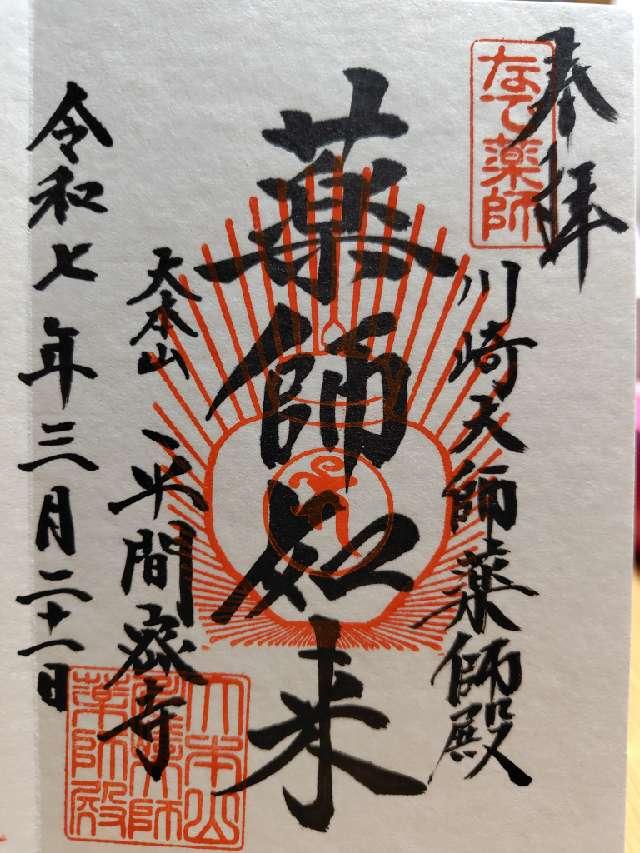 奉拝
なで薬師
川崎大師薬師殿
薬師如来
大本山
平間寺
令和七年三月二十一日
大本山
川崎大師
薬師殿